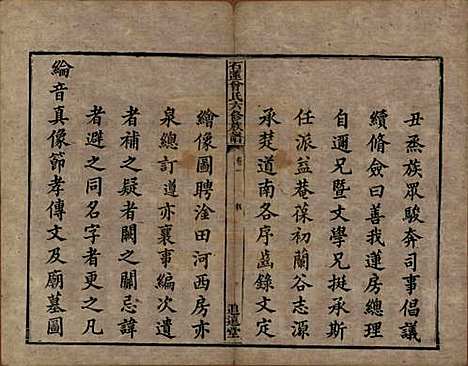 丑烝族眾駿奔司事倡議
續脩僉曰善我蓮房總理
自邇兄暨文學兄挺承斯
任派益菴葆初蘭谷志源
承楚道南各序藍錄文定
石蓮曾氏六修族譜
卷一
追遠堂
繪像圖聘淦田河西房亦
泉總訂遵亦襄事編次遺
者補之疑者闕之闕忌諱
者避之同名字者更之凡
綸音真像節孝傳文及廟墓圖